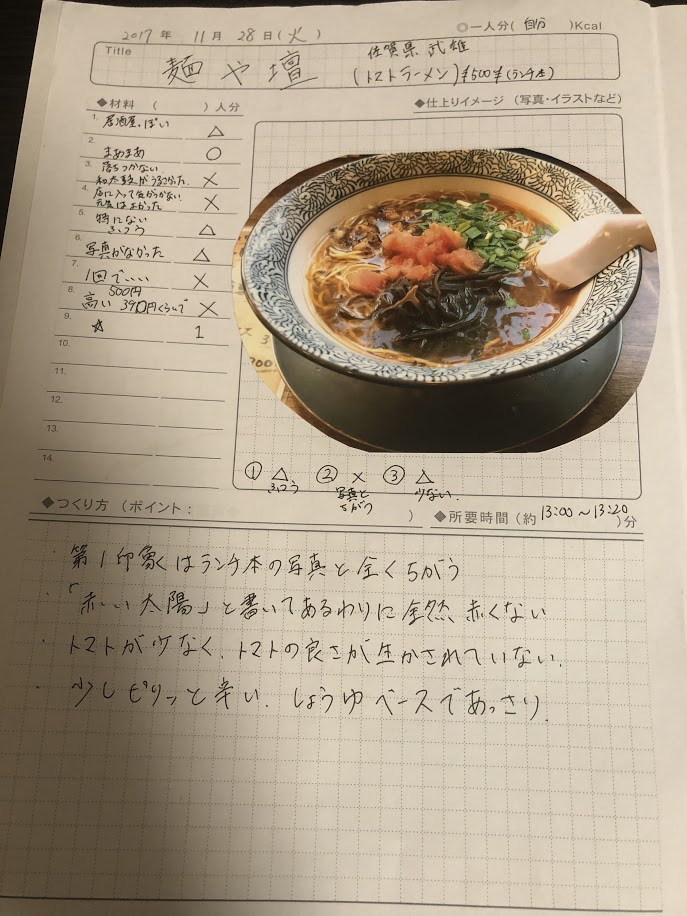 2017年 11月 28日(火)
◎一人分( 自分 )Kcal
Title
麺や壇
佐賀県 武雄
(トマトラーメン) ¥500¥(ランチ本)
◆材料 ( )人分
◆仕上りイメージ (写真・イラストなど)
1. 居酒屋っぽい △
2. まあまあ ○
3. 落ちつかない
和太鼓がうるさかった ×
4. 店に入って気づかない
元気はよかった ×
5. 特にない
ふつう △
6. 写真がなかった △
7. 1回でいい ×
8. 500円
高い 390円くらいで ×
9. ☆ 1
10.
11.
12.
13.
14.
① △ ② × ③ △
ふつう 写真と 少ない.
ちがう
◆つくり方 (ポイント: )
◆所要時間 (約 13:00~13:20 )分
・第1印象はランチ本の写真と全くちがう
・「赤い太陽」と書いてあるわりに全然赤くない
・トマトが少なく、トマトの良さが生かされていない.
・少しピリッと辛い. しょうゆベースであっさり.